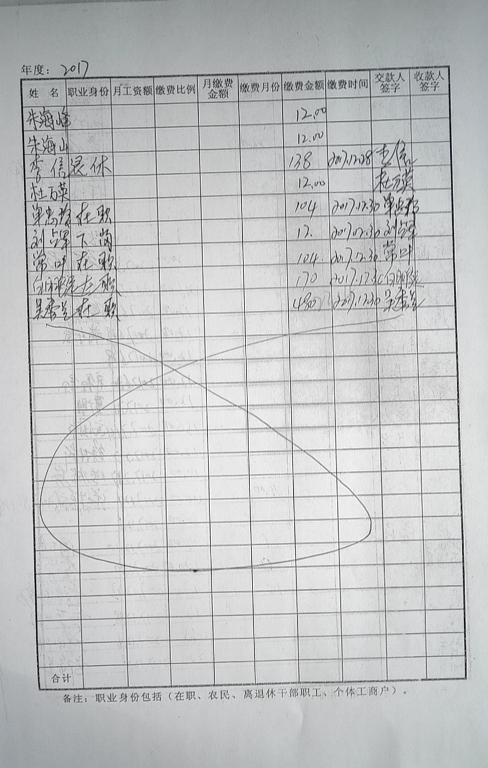 年度：2017
姓 名 职业身份 月工资额 缴费比例 月缴费金额 缴费月份 缴费金额 缴费时间 交款人签字 收款人签字
朱海峰 12.00
朱海山 12.00
李信 退休 138 2017.12.28 李信
杜万英 12.00 杜万英
在职 104 2017.12.30
刘 下岗 12. 2017.12.30 刘
常叶 在职 104 2017.12.30 常叶
170 2017.12.30
吴秀兰 在职 480 2017.12.30 吴秀兰
合计
备注：职业身份包括（在职、农民、离退休干部职工、个体工商户）。